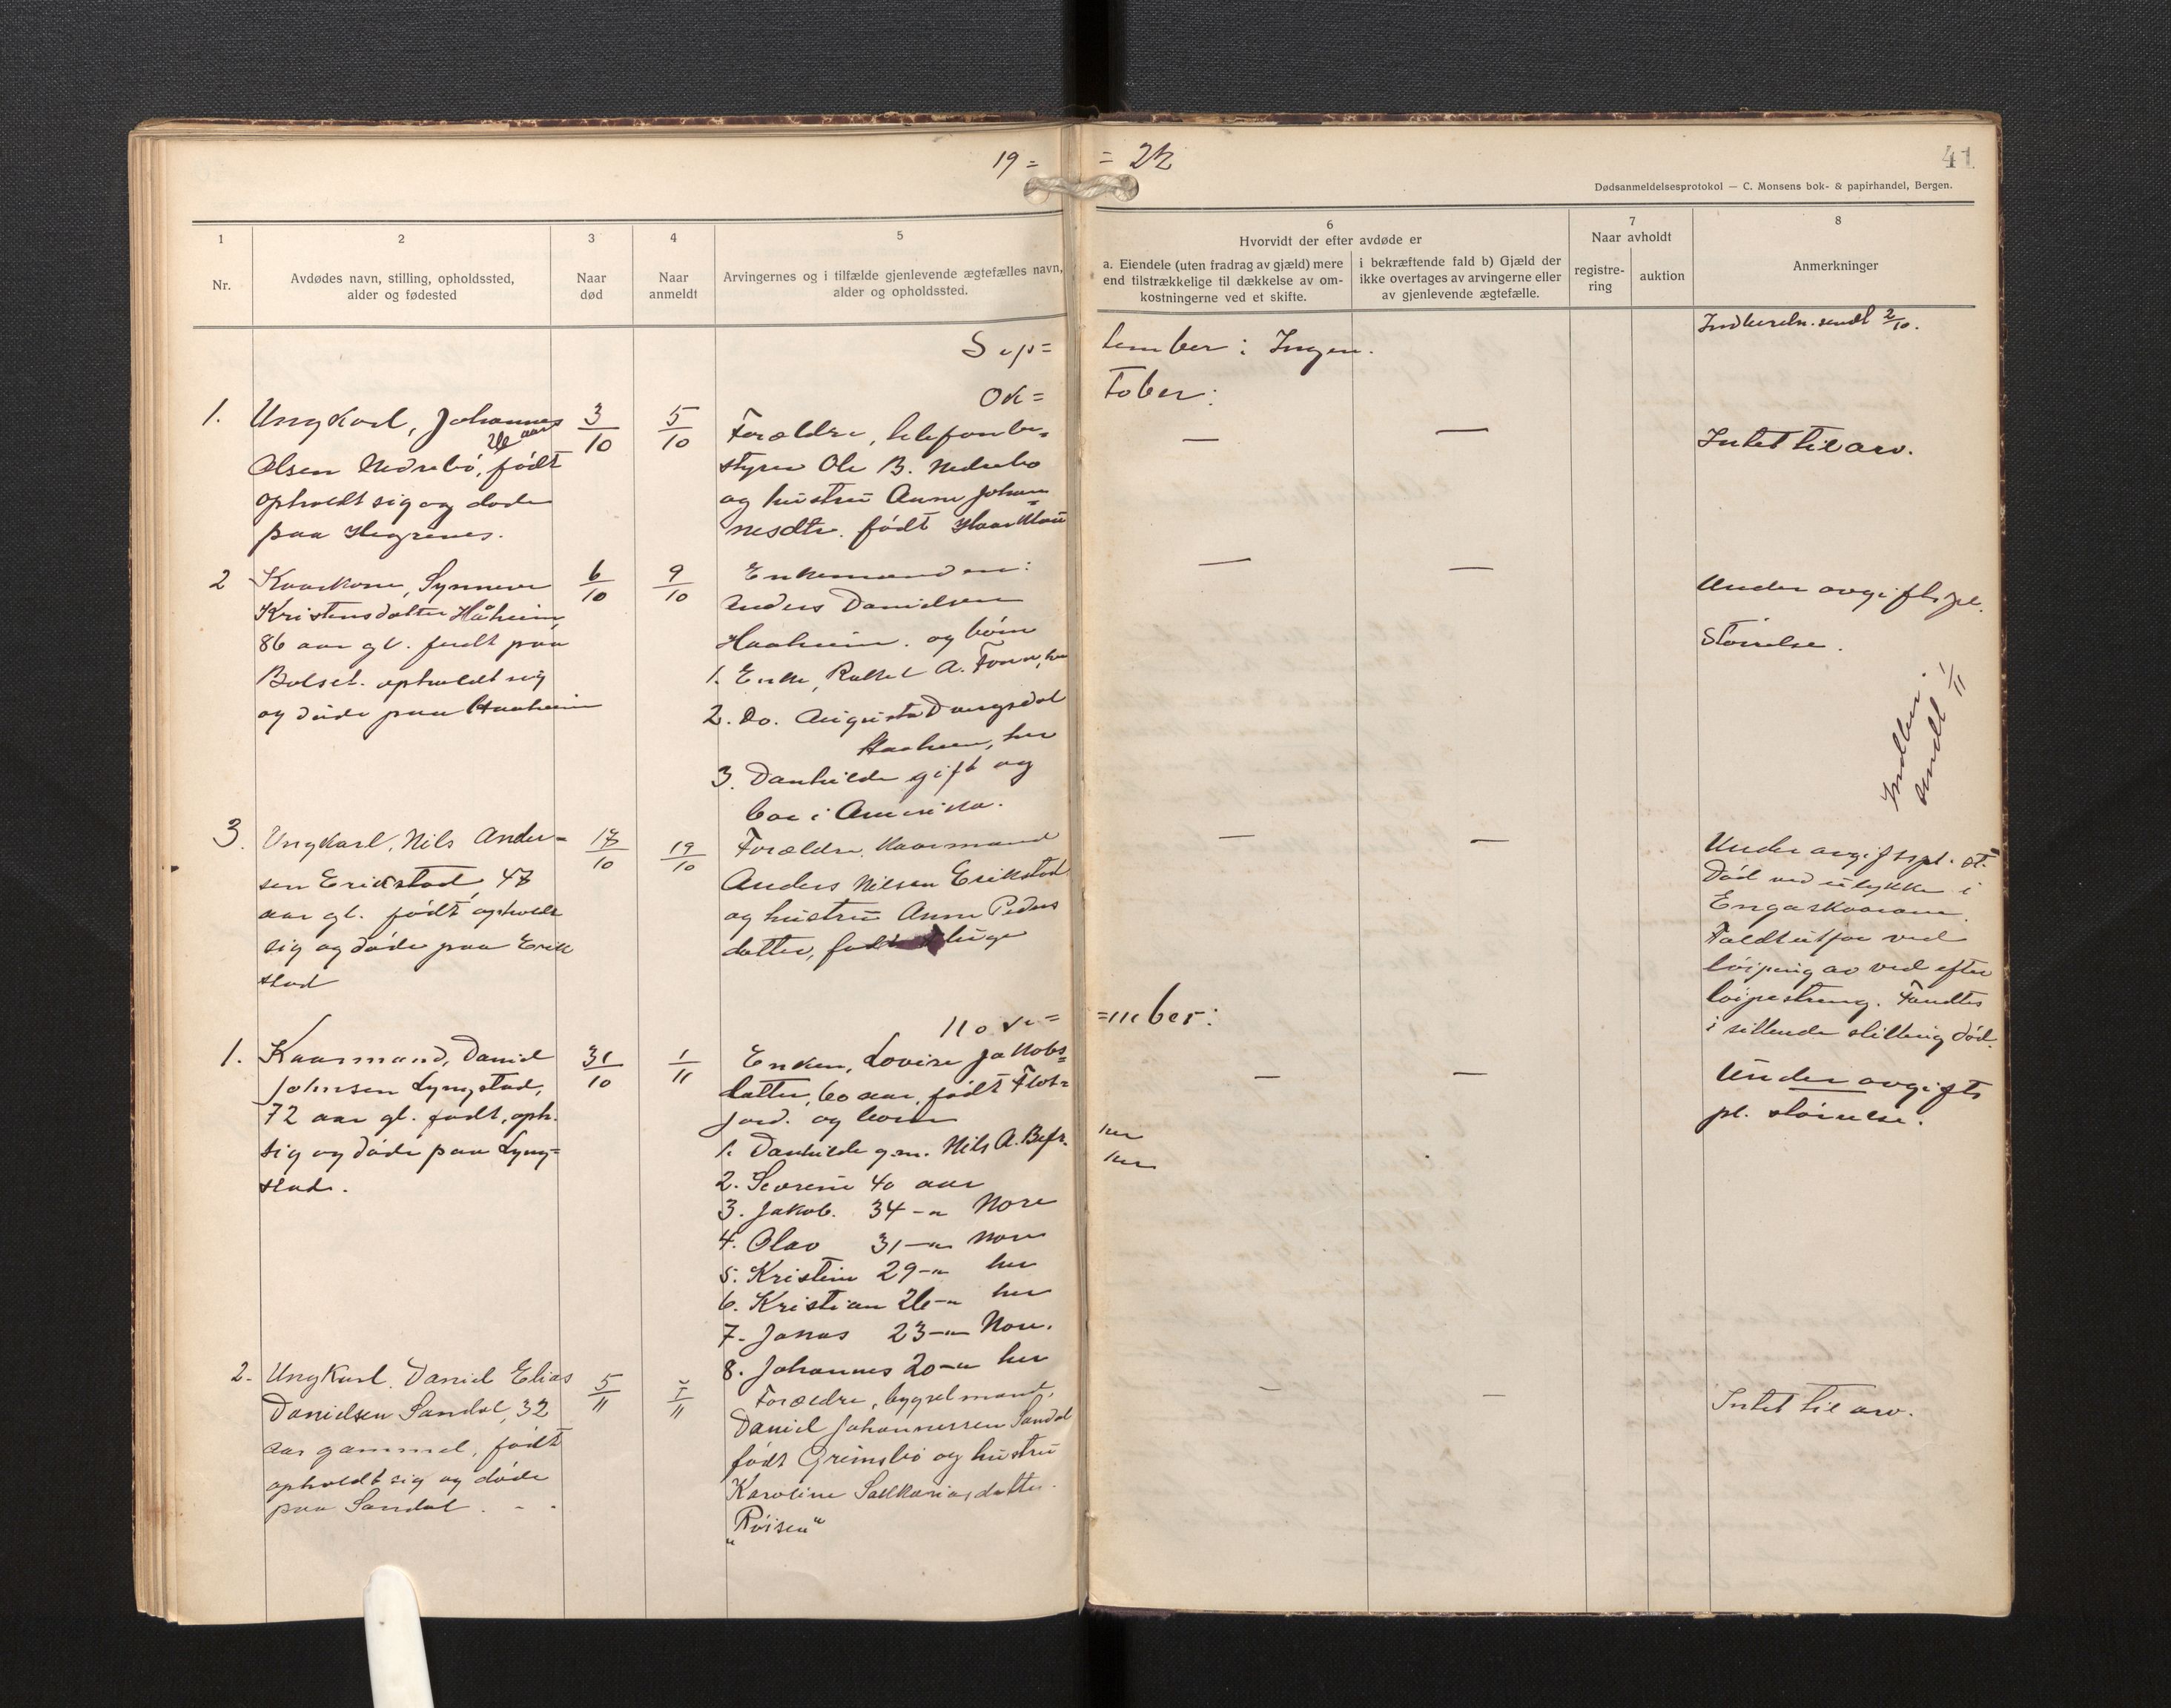 19 = = 22
41
Dødsanmeldelsesprotokol — C. Monsens bok- & papirhandel, Bergen.
1
2
3
4
5
6
7
8
Nr.
Avdødes navn, stilling, opholdssted,
alder og fødested
Naar
død
Naar
anmeldt
Arvingernes og i tilfælde gjenlevende ægtefælles navn,
alder og opholdssted.
Hvorvidt der efter avdøde er
a. Eiendele (uten fradrag av gjæld) mere
end tilstrækkelige til dækkelse av om-
kostningerne ved et skifte.
i bekræftende fald b) Gjæld der
ikke overtages av arvingerne eller
av gjenlevende ægtefælle.
Naar avholdt
registre-
ring
auktion
Anmerkninger
Sep= tember: Ingen.
Indberetn. sendt 2/10.
Ok= tober:
1.
Ungkarl, Johannes
26 aar
Olsen Nedrebö, födt
opholdt sig og döde
paa Hegrenes.
3/10
5/10
Forældre, telefonbe=
styrer Ole B. Nedrebö
og hustru Anne Johan
=nesdtr. födt
—
—
Intet til arv.
2
Kaarkone, Synneve
Kristensdatter Håheim
86 aar gl. födt paa
Bolset. opholdt sig
og döde paa Haaheim
6/10
9/10
Enkemanden:
Anders Danielsen
Haaheim. og börn
1. Enke, Rakel A. Fonn, her
2. Do. Augusta Dvergsdal
Haaheim, her
3. Danhilde gift og
bor i Amerika.
—
—
Under avgiftspl.
Störrelse.
Indber.
sendt 1/11
3.
Ungkarl, Nils Ander=
sen Erikstad, 47
aar gl. födt opholdt
sig og döde paa Erik
stad
17/10
19/10
Forældre, Kaarmand
Anders Nilsen Erikstad
og hustru Anne Peders
datter, födt
—
—
Under avgiftspl. st.
Död ved ulykke i
Engaskaarane.
Faldt utfor ved
löiping av ved efter
löipestreng. Fandtes
i sittende stilling död.
Nove= =mber:
1.
Kaarmand, Daniel
Johnsen Lyngstad,
72 aar gl. födt, oph.
sig og döde paa Lyng=
stad.
31/10
1/11
Enken, Lovise Jakobs=
datter, 60 aar, födt Flot=
jord. og börn
1. Danhilde g.m. Nils A. Befr. her
2. Severine 40 aar her
3. Jakob. 34 -"- Nore
4. Olav 31 -"- Nore
5. Kristine 29 -"- her
6. Kristian 26 -"- her
7. Jonas 23 -"- Nore.
8. Johannes 20 -"- her
—
—
Under avgifts
pl. störrelse.
2.
Ungkarl. Daniel Elias
Danielsen Sandal, 32
aar gammel, födt
opholdt sig og döde
paa Sandal. - -
5/11
Forældre, bygselmand,
Daniel Johannessen Sandal
födt Grimsbö og hustru
Karoline Sakkariasdatter.
"Röisen"
—
—
Intet til arv.